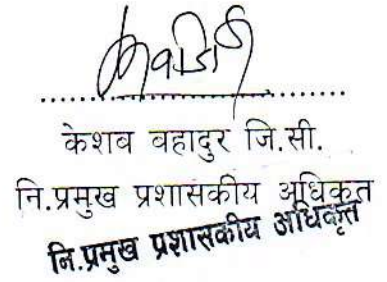 केशब वहादुर जि.सी.
नि.प्रमुख प्रशासकीय अधिकृत
नि.प्रमुख प्रशासकीय अधिकृत